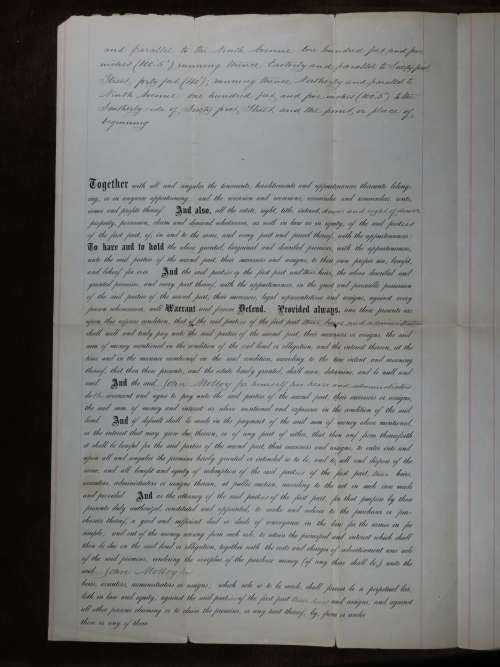 and parallel to the Ninth Avenue one hundred feet and five
inches (100.5") running thence Easterly and parallel to Sixty first
Street, forty feet (40'); running thence Northerly and parallel to
Ninth Avenue one hundred feet, and five inches (100.5") to the
Southerly side of, Sixty first, Street, and the point, or place of,
beginning
Together with all and singular the tenements, hereditaments and appurtenances thereunto belong-
ing, or in anywise appertaining, and the reversion and reversions, remainder and remainders, rents,
issues and profits thereof. And also, all the estate, right, title, interest, dower and right of dower
property, possession, claim and demand whatsoever, as well in law as in equity, of the said parties
of the first part, of, in and to the same, and every part and parcel thereof, with the appurtenances:
To have and to hold the above granted, bargained and described premises, with the appurtenances,
unto the said parties of the second part, their successors and assigns, to their own proper use, benefit,
and behoof for ever. And the said parties of the first part and their heirs, the above described and
granted premises, and every part thereof, with the appurtenances, in the quiet and peaceable possession
of the said parties of the second part, their successors, legal representatives and assigns, against every
person whomsoever, will Warrant and forever Defend. Provided always, and these presents are
upon this express condition, that if the said parties of the first part their heirs and administrators
shall well and truly pay unto the said parties of the second part, their successors or assigns, the said
sum of money mentioned in the condition of the said bond or obligation, and the interest thereon, at the
time and in the manner mentioned in the said condition, according to the true intent and meaning
thereof, that then these presents, and the estate hereby granted, shall cease, determine, and be null and
void. And the said John Molloy for himself his heirs and administrators
doth covenant and agree to pay unto the said parties of the second part, their successors or assigns,
the said sum of money and interest as above mentioned and expressed in the condition of the said
bond. And if default shall be made in the payment of the said sum of money above mentioned,
or the interest that may grow due thereon, or of any part of either, that then and from thenceforth
it shall be lawful for the said parties of the second part, their successors and assigns, to enter into and
upon all and singular the premises hereby granted or intended so to be, and to sell and dispose of the
same, and all benefit and equity of redemption of the said parties of the first part, their heirs,
executors, administrators or assigns therein, at public auction, according to the act in such case made
and provided. And as the attorney of the said parties of the first part, for that purpose by these
presents duly authorized, constituted and appointed, to make and deliver to the purchaser or pur-
chasers thereof, a good and sufficient deed or deeds of conveyance in the law for the same in fee
simple, and out of the money arising from such sale, to retain the principal and interest which shall
then be due on the said bond or obligation, together with the costs and charges of advertisement and sale
of the said premises, rendering the overplus of the purchase money (if any there shall be,) unto the
said John Molloy his
heirs, executors, administrators or assigns: which sale so to be made, shall forever be a perpetual bar,
both in law and equity, against the said parties of the first part their heirs and assigns, and against
all other persons claiming or to claim the premises, or any part thereof, by, from or under
them or any of them